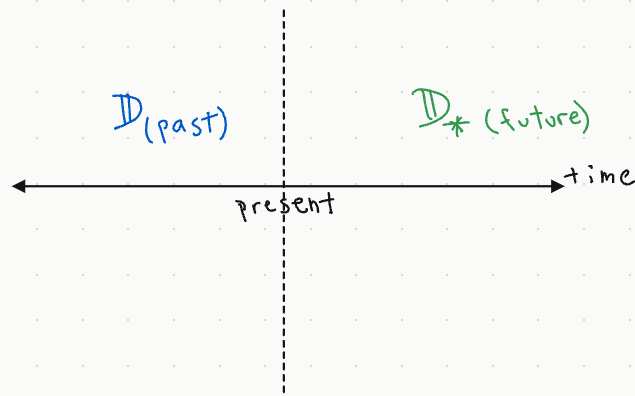 𝔻(past)
𝔻* (future)
time
present